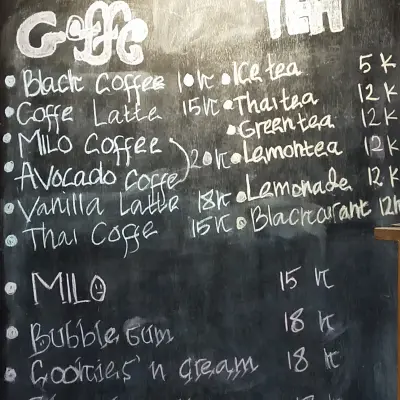 Coffe
Black Coffee 10K
Coffe Latte 15K
MILO Coffee
Avocado Coffe 20K
Vanilla Latte 18K
Thai Coffe 15K
TEA
Ice tea 5K
Thai tea 12K
Green tea 12K
Lemon tea 12K
Lemonade 12K
Blackcurant 12K
MILO 15K
Bubble gum 18K
Cookies'n cream 18K